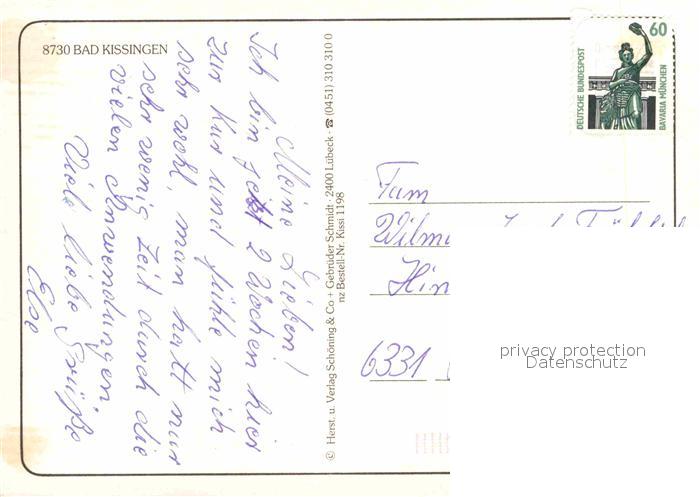 8730 BAD KISSINGEN
Meine Lieben!
Ich bin jetzt 2 Wochen hier
zur Kur und fühle mich
sehr wohl, man hatt nur
sehr wenig Zeit durch die
vielen Anwendungen.
Viele liebe Grüße
Else
© Herst. u. Verlag Schöning & Co + Gebrüder Schmidt · 2400 Lübeck · ☎ (0451) 310 310 0
nz Bestell-Nr. Kissi 1198
60
DEUTSCHE BUNDESPOST
BAVARIA MÜNCHEN
Fam
Wilm
Hin
6331
privacy protection
Datenschutz